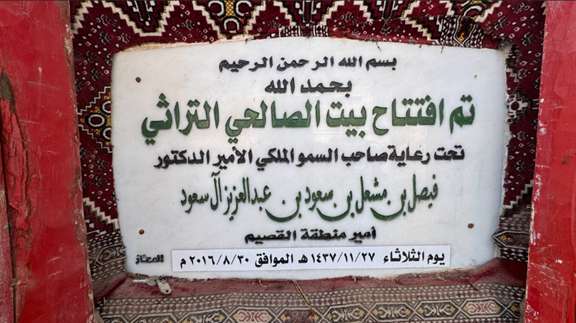 بسم الله الرحمن الرحيم
بحمد الله
تم افتتاح بيت الصالحي التراثي
تحت رعاية صاحب السمو الملكي الأمير الدكتور
فيصل بن مشعل بن سعود بن عبدالعزيز آل سعود
أمير منطقة القصيم
يوم الثلاثاء ١٤٣٧/١١/٢٧ هـ الموافق ٢٠١٦/٨/٣٠ م